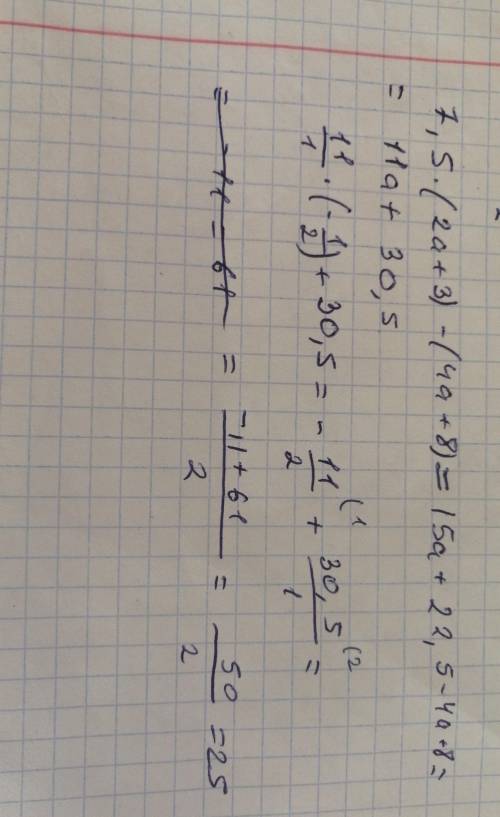 7,5·(2a+3)-(4a+8)=15a+22,5-4a+8=
= 11a+30,5
11/1 · (-1/2) + 30,5 = -11/2 (1 + 30,5/1 (2 =
= -11-61 = -11+61/2 = 50/2 = 25